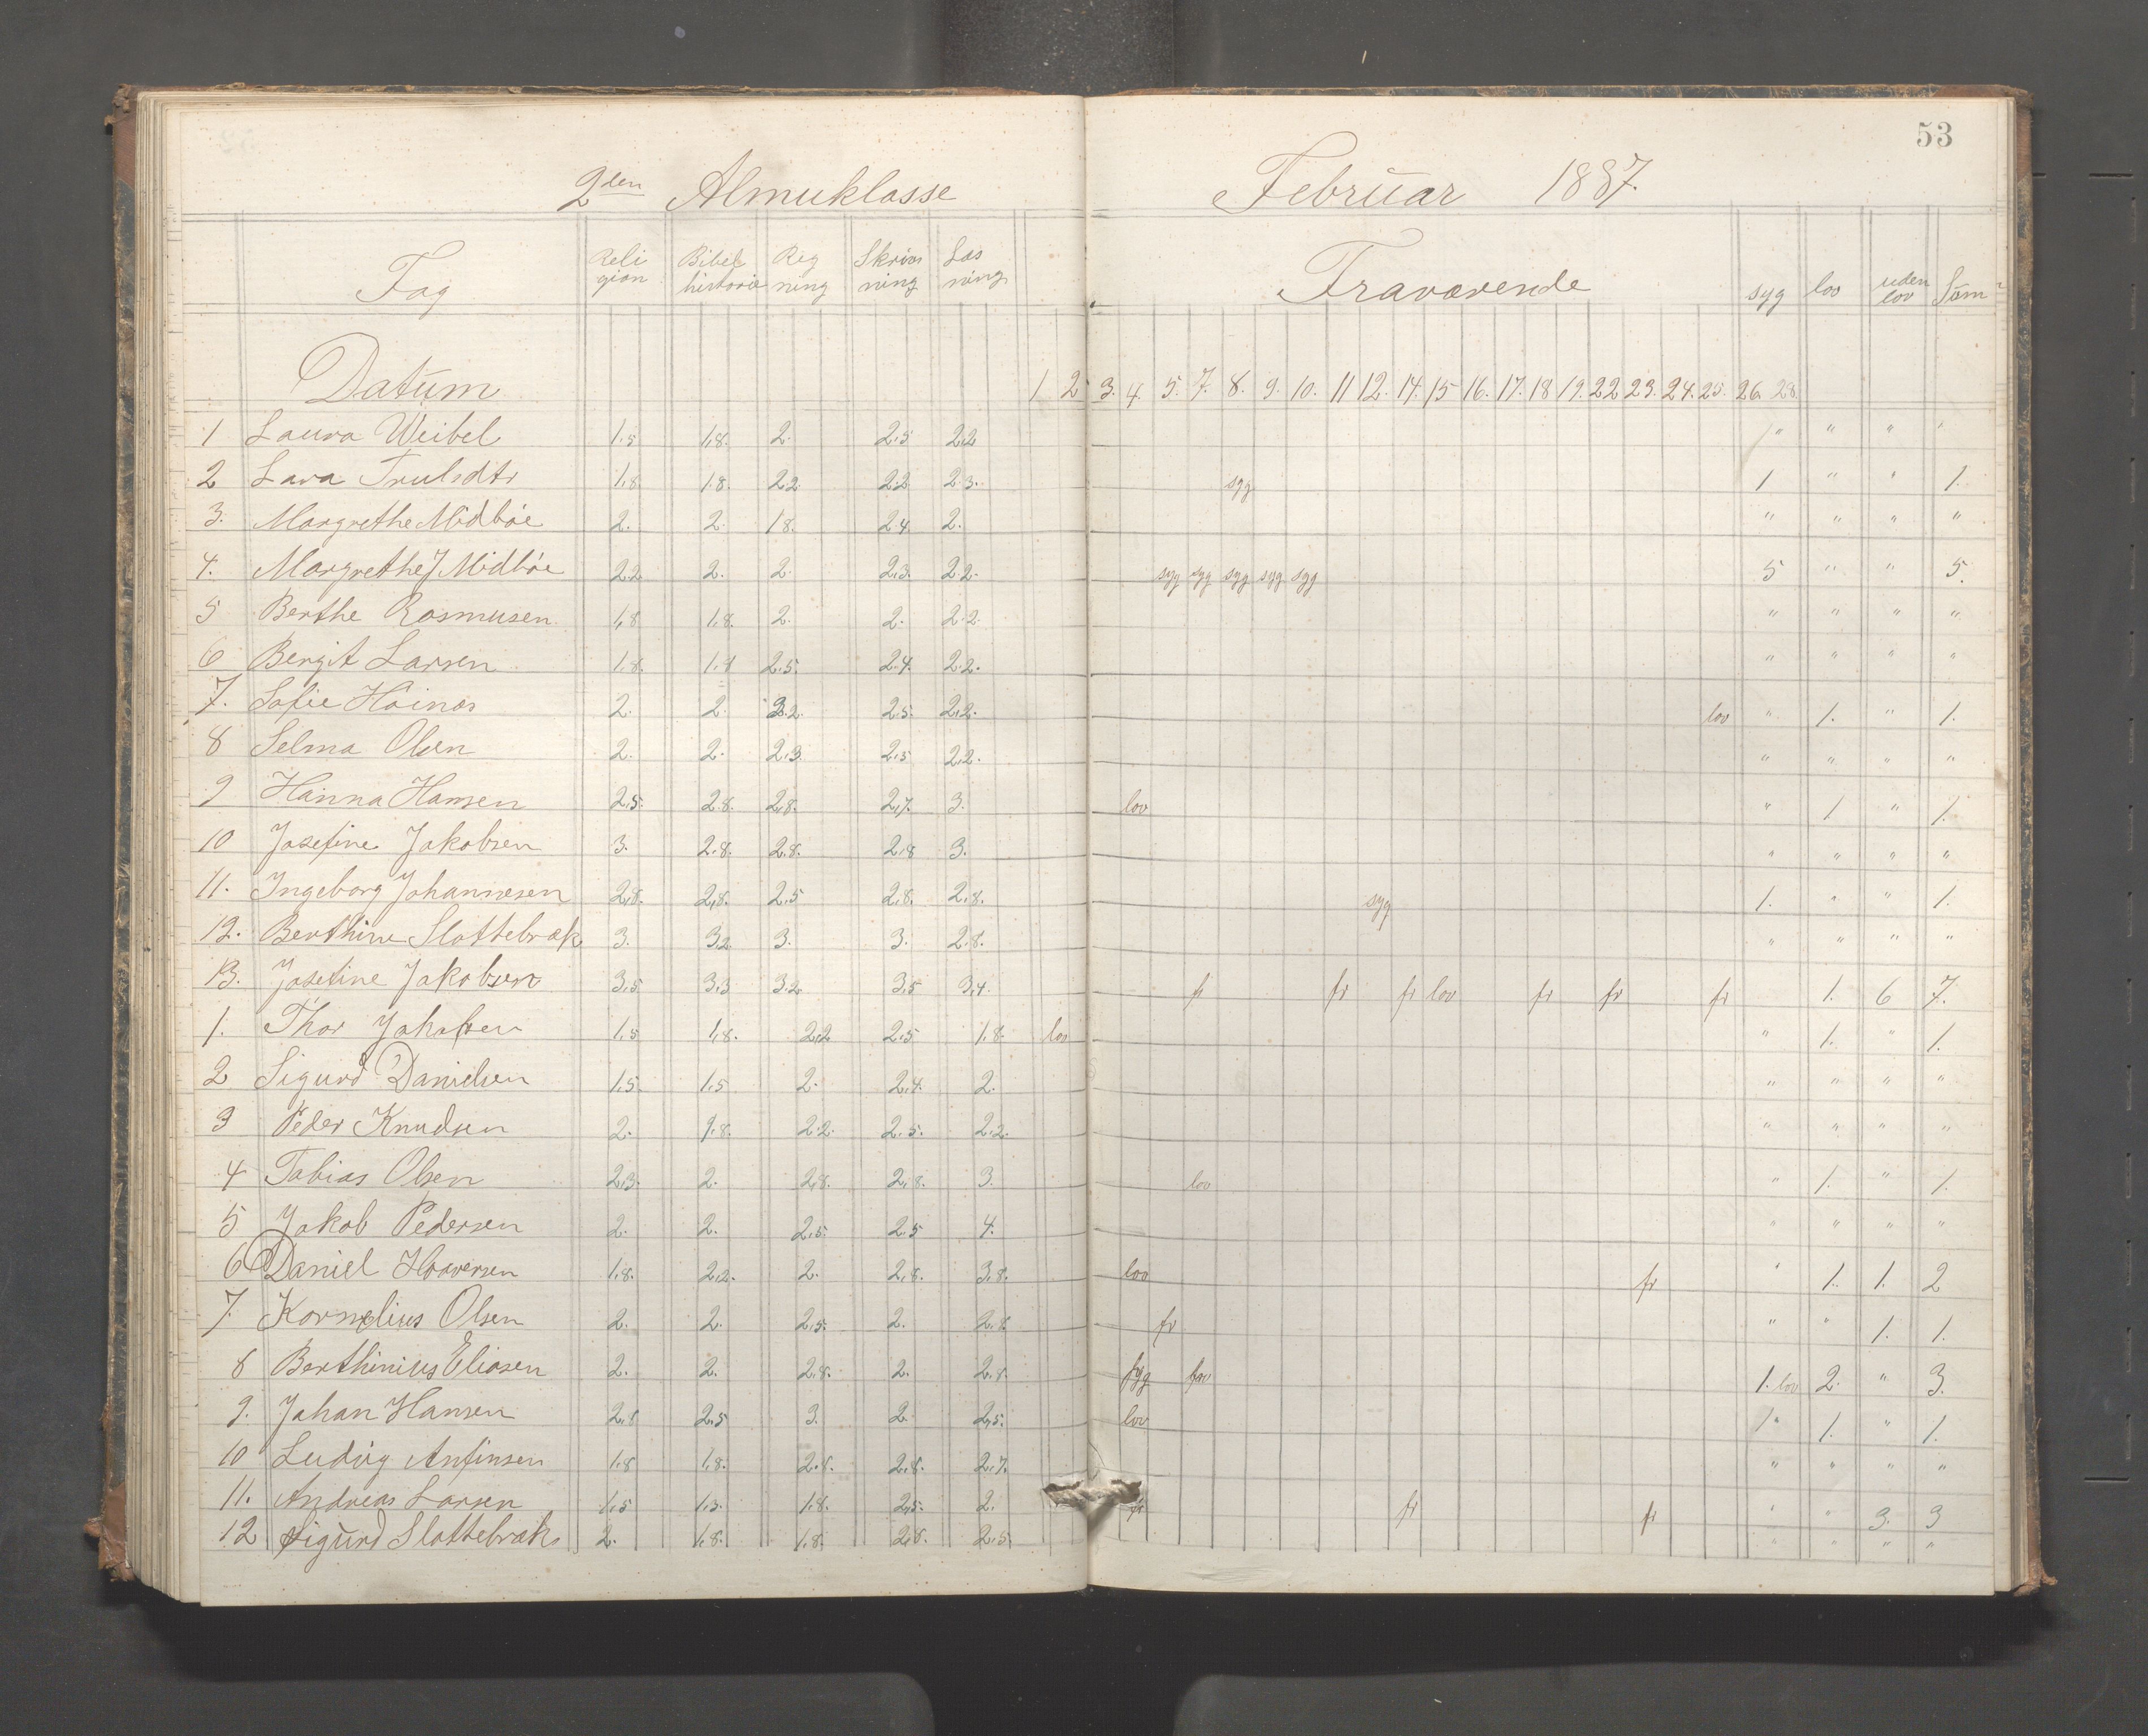 53
2den Almuklasse Februar 1887.
Fag Reli gion Bibel historie Reg ning Skriv ning Læs ning Fraværende syg lov uden lov Sum
Datum 1 2 3. 4. 5. 7. 8. 9. 10. 11 12. 14. 15 16. 17. 18 19. 22 23. 24. 25. 26. 28.
1 Laura Weibel 1.5 1,8. 2. 2.5 2,2 " " " "
2 Lava Trulsdtr 1,8 1.8. 2.2. 2.2 2.3. syg 1 " " 1.
3. Margrethe Midbøe 2. 2. 1.8. 2.4. 2. " " " "
4. Margrethe J Midbøe 2.2 2. 2. 2,3. 2.2. syg syg syg syg syg 5 " " 5.
5 Berthe Rasmusen 1,8 1.8. 2. 2. 2.2. " " " "
6 Bergit Larsen 1.8. 1.8 2.5. 2.4. 2.2. " " " "
7. Sofie Høines 2. 2. 3.2. 2.5. 2,2. lov " 1. " 1.
8 Selma Olsen 2. 2. 2.3. 2.5 2,2. " " " "
9 Hanna Hansen 2,5. 2.8. 2,8. 2,7. 3. lov " 1 " 1.
10 Josefine Jakobsen 3. 2.8. 2.8. 2.8 3. " " " "
11. Ingeborg Johannesen 2,8. 2,8. 2.5 2,8. 2.8. syg 1. " " 1.
12. Berthine Slottebræk 3. 3.2 3. 3. 2.8. " " " "
13. Josefine Jakobsen 3,5 3,3 3.2 3.5 3,4. fr fr fr lov fr fr fr 1. 6 7.
1. Thor Jakobsen 1,5 1,8. 2,2 2.5 1.8. lov " 1. " 1.
2 Sigurd Danielsen 1,5. 1.5 2. 2,4. 2. " " " "
3 Peder Knudsen 2. 1.8. 2.2. 2.5. 2.2. " " " "
4 Tobias Olsen 2,3. 2. 2,8. 2,8. 3. lov " 1. " 1.
5 Jakob Pedersen 2. 2. 2,5. 2.5 4. " " " "
6 Daniel Haaversen 1.8. 2.2. 2. 2,8. 3.8. lov fr " 1. 1. 2
7. Kornelius Olsen 2. 2. 2,5. 2. 2.8 fr " " 1. 1.
8 Berthinius Eliasen 2. 2. 2.8. 2. 2.8. syg lov 1. lov 2. " 3.
9. Johan Hansen 2,8 2.5 3. 2. 2,5. lov " 1. " 1.
10 Ludvig Anfinsen 1.8 1,8. 2.8. 2.8. 2.7. " " " "
11. Andreas Larsen 1,5 1,5. 1.8. 2,5. 2. fr fr fr " " 3. 3
12 Sigurd Slottebræk 2. 1,8. 1.8. 2,8. 2.5. " " " "